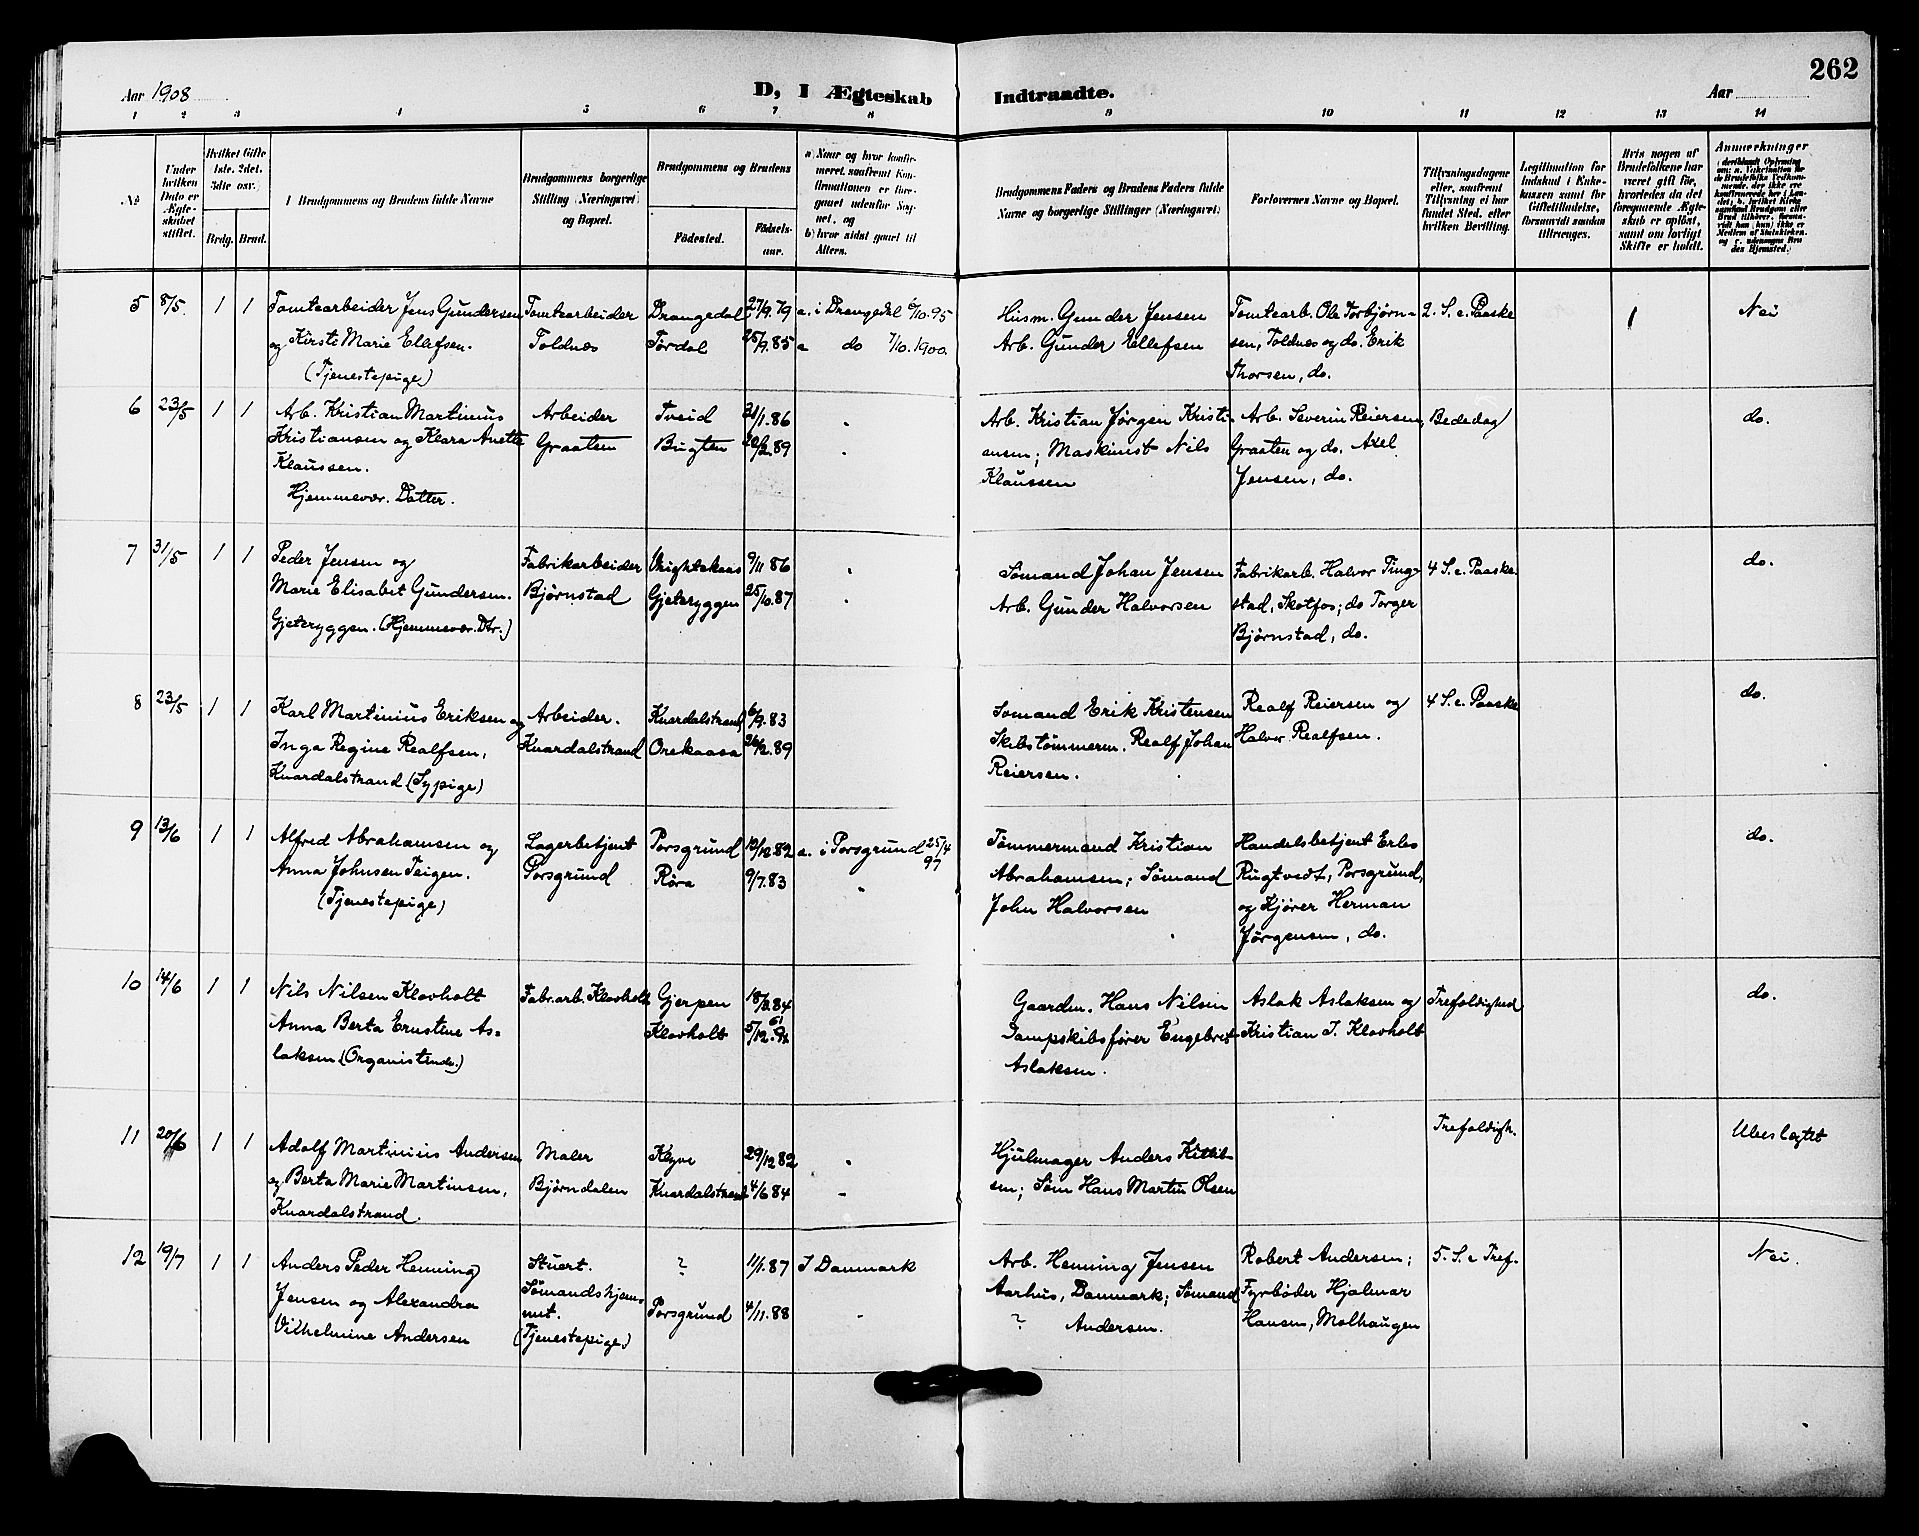 262
Aar 1908
D, I Ægteskab Indtraadte.
Aar
1 2 3 4 5 6 7 8 9 10 11 12 13 14
№
Under hvilken Dato er Ægteskabet stiftet.
Hvilket Gifte 1ste. 2det. 3die osv.
Brdg. Brud.
Brudgommens og Brudens fulde Navne
Brudgommens borgerlige Stilling (Næringsvei) og Bopæl.
Brudgommens og Brudens
Födested.
Födselsaar.
a) Naar og hvor konfirmeret, saafremt Konfirmationen er foregaaet udenfor Sognet, og
b) hvor sidst gaaet til Alters.
Brudgommens Faders og Brudens Faders fulde Navne og borgerlige Stillinger (Næringsvei)
Forlovernes Navne og Bopæl.
Tillysningsdagene eller, saafremt Tillysning ei har fundet Sted, efter hvilken Bevilling.
Legitimation for Indskud i Enkekassen samt for Giftetilladelse, forsaavidt saadan tiltrænges.
Hvis nogen af Brudefolkene har været gift før, hvorledes da det foregaaende Ægteskab er oplöst, samt om lovligt Skifte er holdt.
Anmærkninger
5 8/5. 1 1
Tomtearbeider Jens Gundersen
og Kirsti Marie Ellefsen.
(Tjenestepige)
Tomtearbeider
Toldnes
Drangedal
Tørdal
27/9.79
25/9.85
a. i Drangedal 6/10.95
a do 7/10.1900.
Husm. Gunder Jensen
Arb. Gunder Ellefsen
Tomtearb. Ole Torbjørn-
sen, Toldnes og do. Erik
Thorsen, do.
2. S. e. Paaske
1
Nei
6 23/5 1 1
Arb. Kristian Martinius
Kristiansen og Klara Anette
Klaussen.
Hjemmevær. Datter.
Arbeider
Graaten
Tveid
Bugten
/1.86
/2.89
"
"
Arb. Kristian Jørgen Kristi-
ansen; Maskinist Nils
Klaussen
Arb. Severin Reiersen,
Graaten og do. Axel
Jensen, do.
Bededag
do.
7 31/5 1 1
Peder Jensen og
Marie Elisabet Gundersen.
Gjeteryggen. (Hjemmevær. Dtr.)
Fabrikarbeider
Bjørnstad
Gjeteryggen
9/11 86
25/10.87
"
"
Sømand Johan Jensen
Arb. Gunder Halvorsen
Fabrikarb. Halvor Ting-
stad, Skotfos; do Torger
Bjørnstad, do.
4 S. e. Paaske.
do.
8 23/5 1 1
Karl Martinius Eriksen og
Inga Regine Realfsen,
Knardalstrand (Sypige)
Arbeider.
Knardalstrand
Knardalstrand
Orekaasa
6/9.83
26/2.89
Sømand Erik Kristensen
Skibstømmerm. Realf Johan
Reiersen.
Realf Reiersen og
Halvor Realfsen.
4 S. e. Paaske
do.
9 13/6 1 1
Alfred Abrahamsen og
Anna Johnsen Teigen.
(Tjenestepige)
Lagerbetjent
Porsgrund
Porsgrund
Røra
/12.82
9/7.83
a. i Porsgrund 25/4
97
"
Tømmermand Kristian
Abrahamsen; Sømand
John Halvorsen
Handelsbetjent Erbo
Rugtvedt, Porsgrund,
og Kjører Herman
Jørgensen, do.
do.
10 14/6 1 1
Nils Nilsen Klovholt
Anna Berta Ernstine As-
laksen (Organistinde.)
Fabr.arb. Klovholt
Gjerpen
Klovholt
18/3.84
5/12.
Gaardm. Hans Nilsen
Dampskibsfører Engebret
Aslaksen.
Aslak Aslaksen og
Kristian J. Klovholt
Trefoldighed
do.
11 20/6 1 1
Adolf Martinius Andersen
og Berta Marie Martinsen,
Knardalstrand.
Maler
Bjørndalen
Klyve
Knardalstrand
29/12 82
4/6 84
"
"
Hjulmager Anders Kittil-
sen; Søm Hans Martin Olsen
Trefoldigh.
Ubeslegtet
12 19/7 1 1
Anders Peder Henning
Jensen og Alexandra
Vilhelmine Andersen
Stuert.
Sømandshjem-
met.
(Tjenestepige)
?
Porsgrund
11/1.87
4/11.88
I Danmark
"
Arb. Henning Jensen
Aarhus, Danmark; Sømand
? Andersen.
Robert Andersen;
Fyrbøder Hjalmar
Hansen, Molhaugen
5. S. e Tref.
Nei.